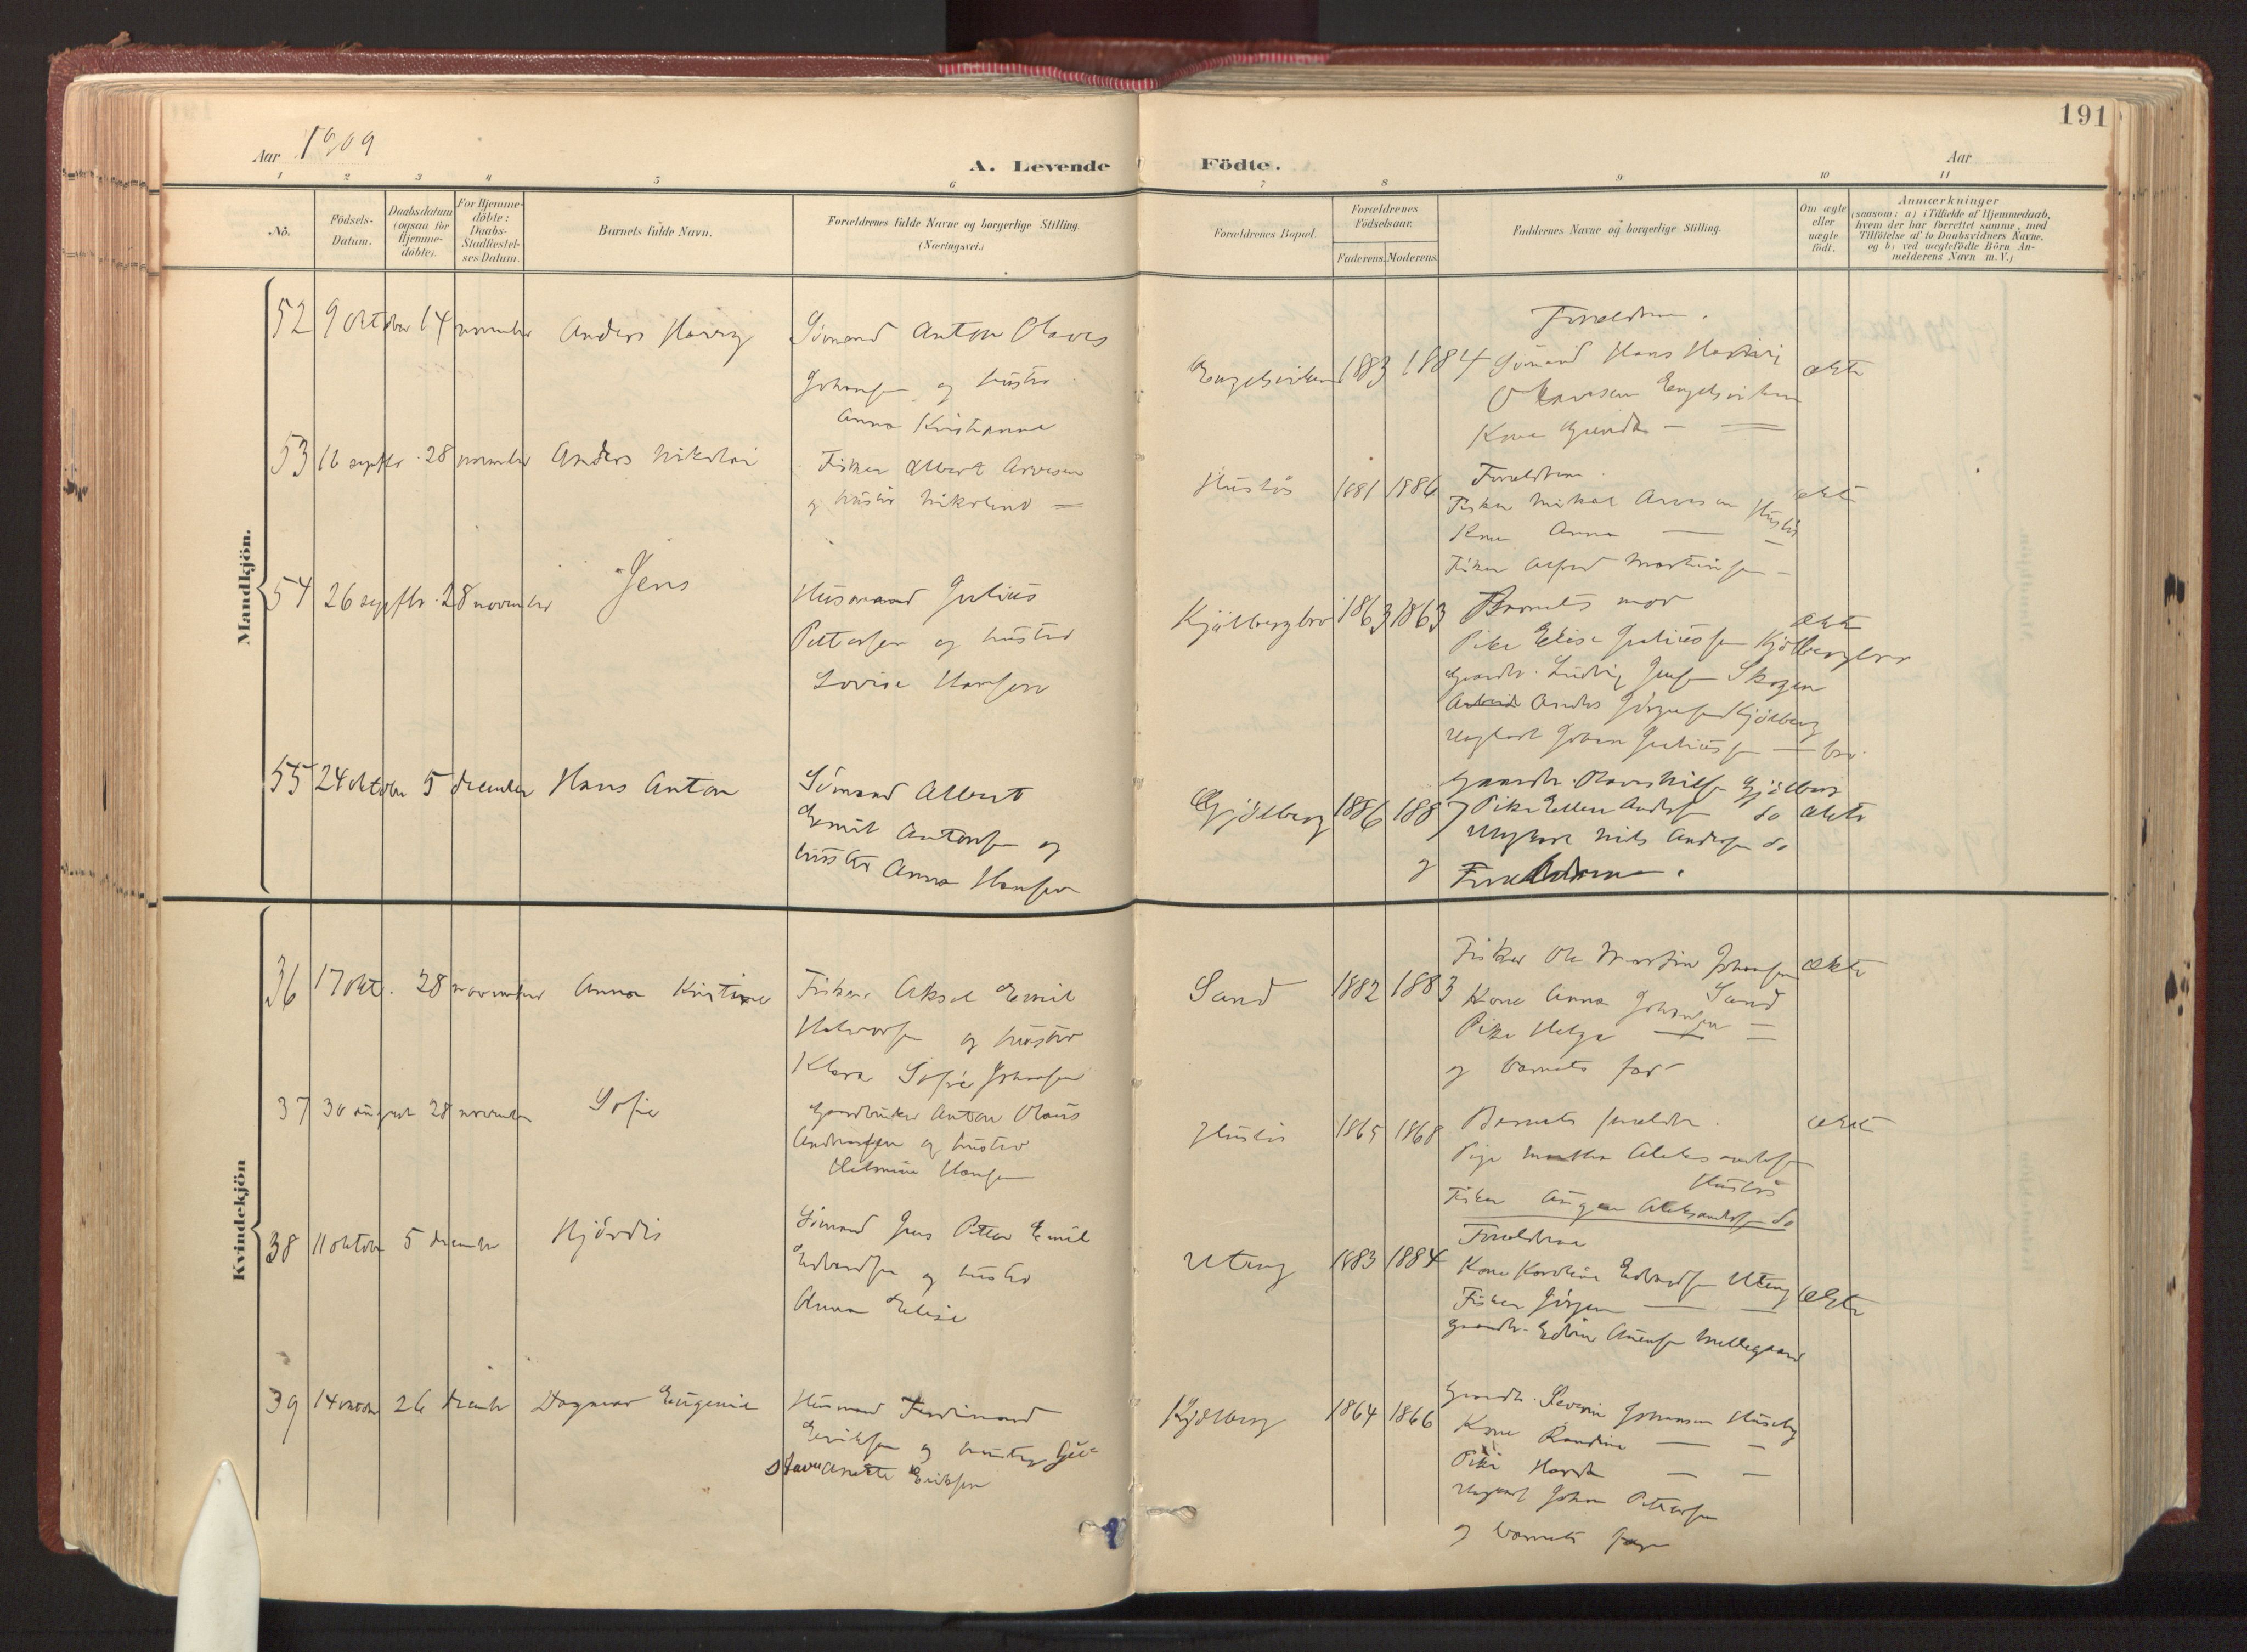 191
Aar 1909
A. Levende Födte.
Aar
1 2 3 4 5 6 7 8 9 10 11
No.
Födsels-Datum.
Daabsdatum (ogsaa for Hjemme-döbte).
For Hjemme-döbte: Daabs-Stadfæstel-ses Datum.
Barnets fulde Navn.
Forældrenes fulde Navne og borgerlige Stilling. (Næringsvei.)
Forældrenes Bopæl.
Forældrenes Födselsaar.
Faderens. Moderens.
Faddernes Navne og borgerlige Stilling.
Om ægte eller uægte födt.
Anmærkninger
(saasom: a) i Tilfælde af Hjemmedaab,
hvem der har forrettet samme, med
Tilföielse af to Daabsvidners Navne,
og b) ved uægtefödte Börn An-
melderens Navn m. V.)
Mandkjön.
52 9 oktober 14 november Anders Harry
Sömand Anton Olaves
Johansen og hustro
Anna Kristianne
Engelsviken 1883 1884
Forældrene.
Sömand Hans
Engelsviken
Kone
ækte
53 16 septbr. 28 november Anders Nikolai
Fisker Albert Arvesen
og hustro Nikoline —
Huslös 1881 1886
Forældrene.
Fisker Mikal Arvesen Huslös
Kone Anna — —
Fisker Alfred Martinsen —
ækte
54 26 septbr. 28 november Jens
Husmand Julius
Pettersen og hustro
Lovise Hansen
Kjölbergbro 1863 1863
Barnets mor
Pike Elise Juliussen Kjölbergbro
Gaardbr. Ludvig Skogen
Anders Jörgensen Kjölberg
Ungkarl Johan Juliussen — bro
ækte
55 24 oktober 5 december Hans Anton
Sömand Albert
Emil Antonsen og
hustro Anna Hansen
Gjölberg 1886 1887
Gaardbr. Olaves Nilsen Gjölberg
Pike Ellen Andersen do
Ungkarl Nils Andersen do
og Forældrene.
ækte
Kvindekjön
36 17 okt. 28 november Anna Kristine
Fisker Aksel Emil
Halvorsen og hustro
Klara Sofie Johansen
Sand 1882 1883
Fisker Ole Martin Johansen
Kone Anna Johansen Sand
Pike Helga — —
og barnets far
ækte
37 30 august 28 november Sofie
Gaardbruker Anton Olaus
Andreassen og hustro
Helmine Hansen
Huslös 1865 1868
Barnets forældre.
Pige Martha Aleksandersen
Huslös
Fisker Aleksandersen do
ækte
38 11 oktober 5 december Hjördis
Sömand Jens Petter Emil
Edvardsen og hustro
Anna Elise
Uteng 1883 1884
Forældrene
Kone Karoline Edvardsen Uteng
Fisker Jörgen — —
Gaardbr. Edvin
ækte
39 14 oktober 26 december Dagmar Eugenie
Husmand Ferdinand
Eriksen og hustro Gu-
stava Anette Eriksen
Kjölberg 1864 1866
Gaardbr. Severin Johansen Huseby
Kone Randine — —
Pike — —
Ungkarl Johan Pettersen
og barnets far